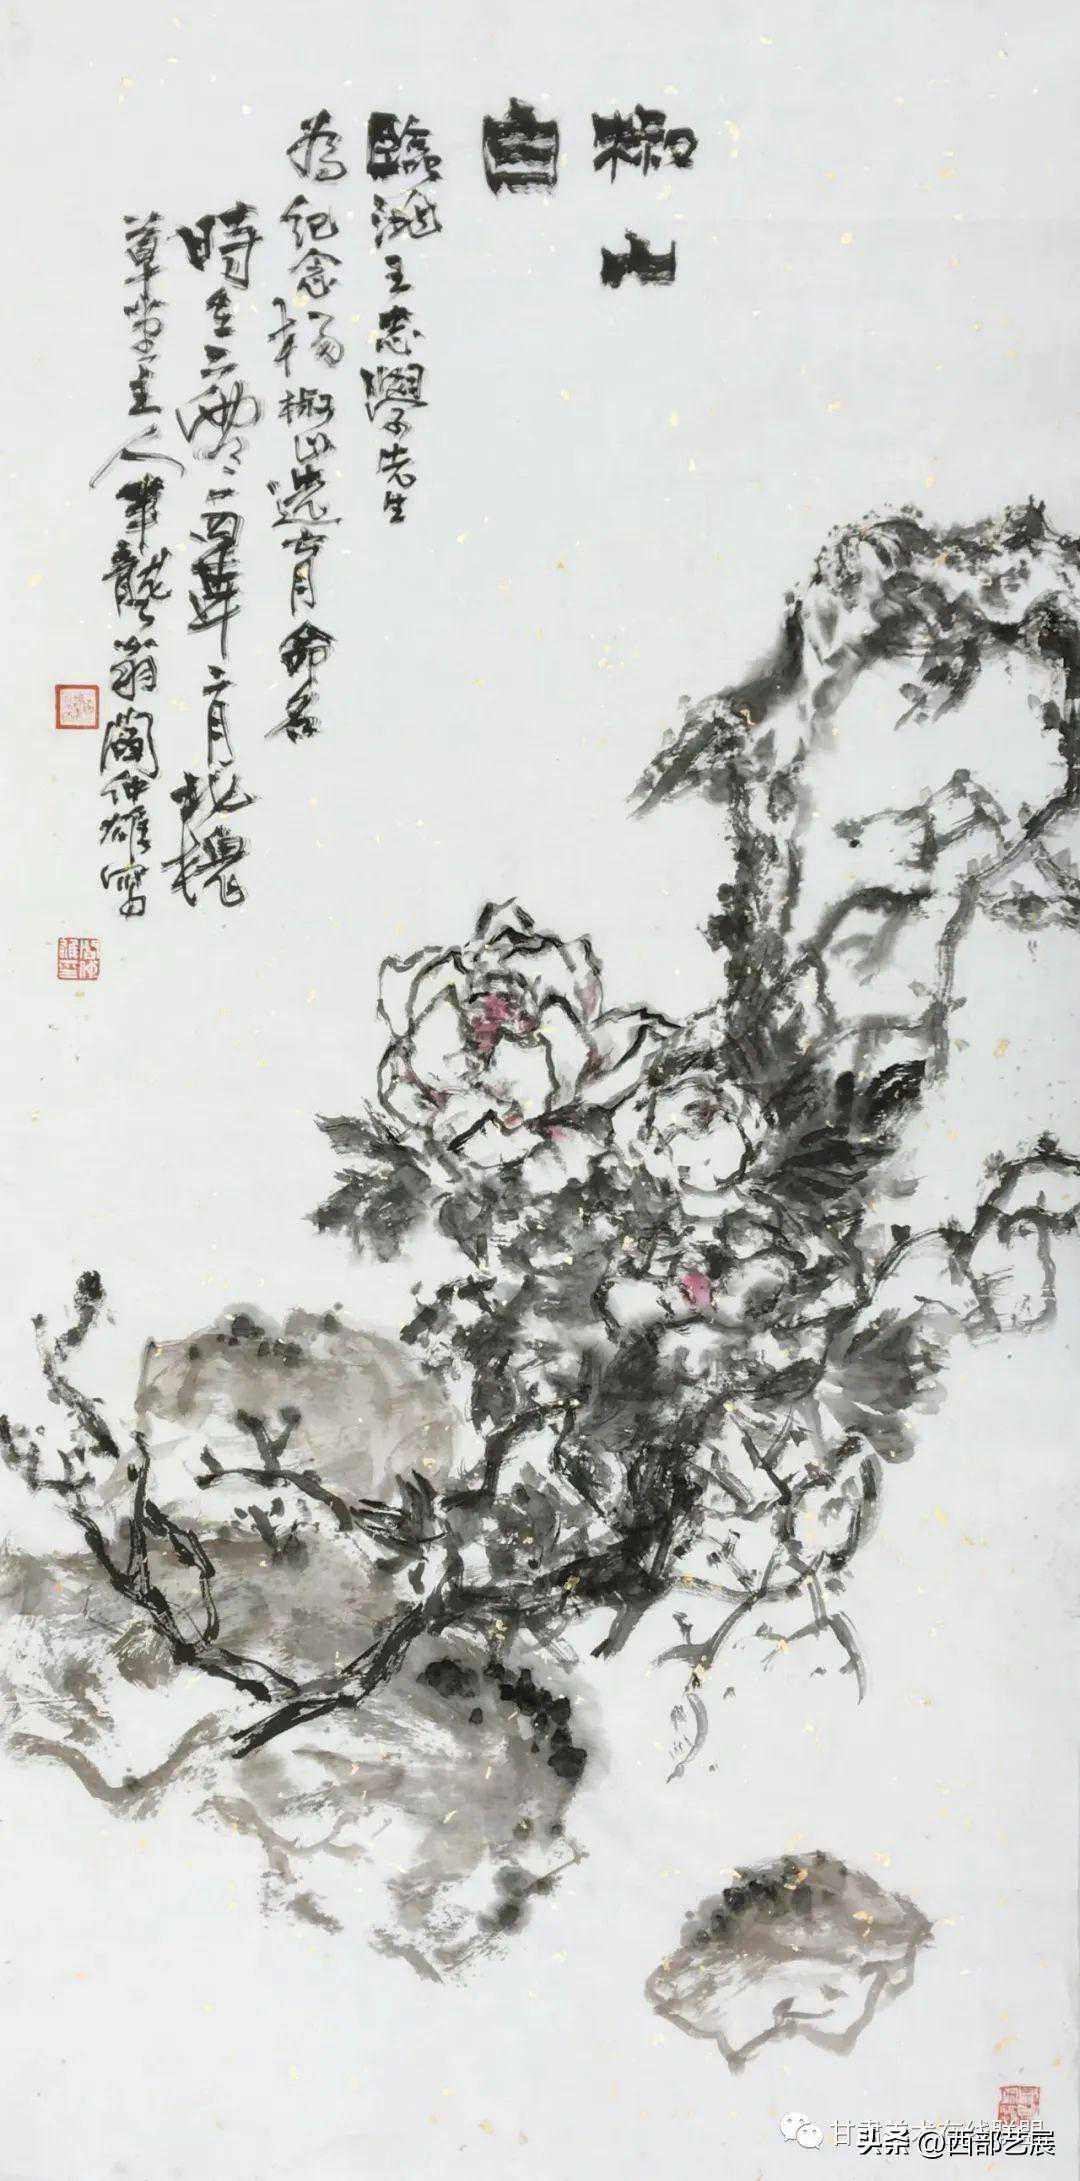 椒山
白
臨洮王志學先生
為紀念楊椒山選育命名
時在二零二四年二月
草堂主人 龍翁 蘭仲雄寫
甘肃美术在线联盟
头条 @西部艺展